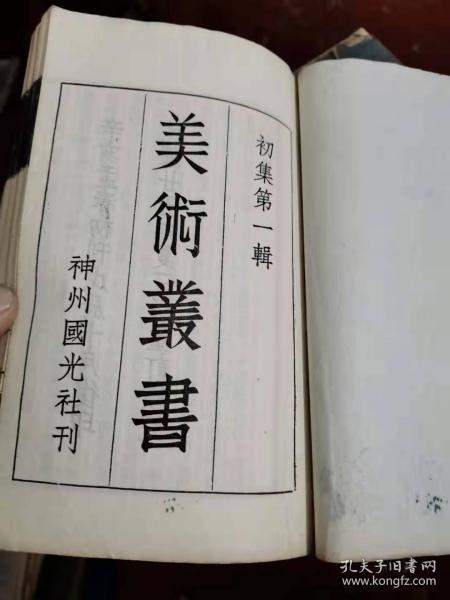 初集第一輯
美術叢書
神州國光社刊
孔夫子旧书网
www.kongfz.com